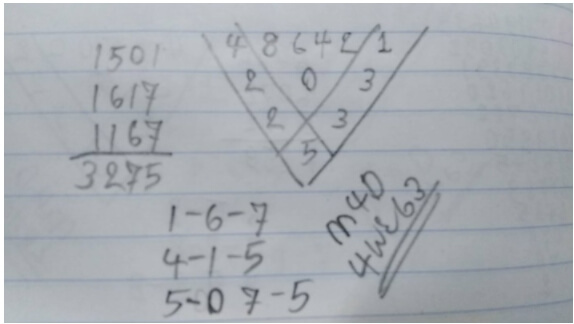 1501
1617
1167
3275
4 8 6 4 2 1
2 0 3
2 3
5
1-6-7
4-1-5
5-0 7-5
m40
4WE63